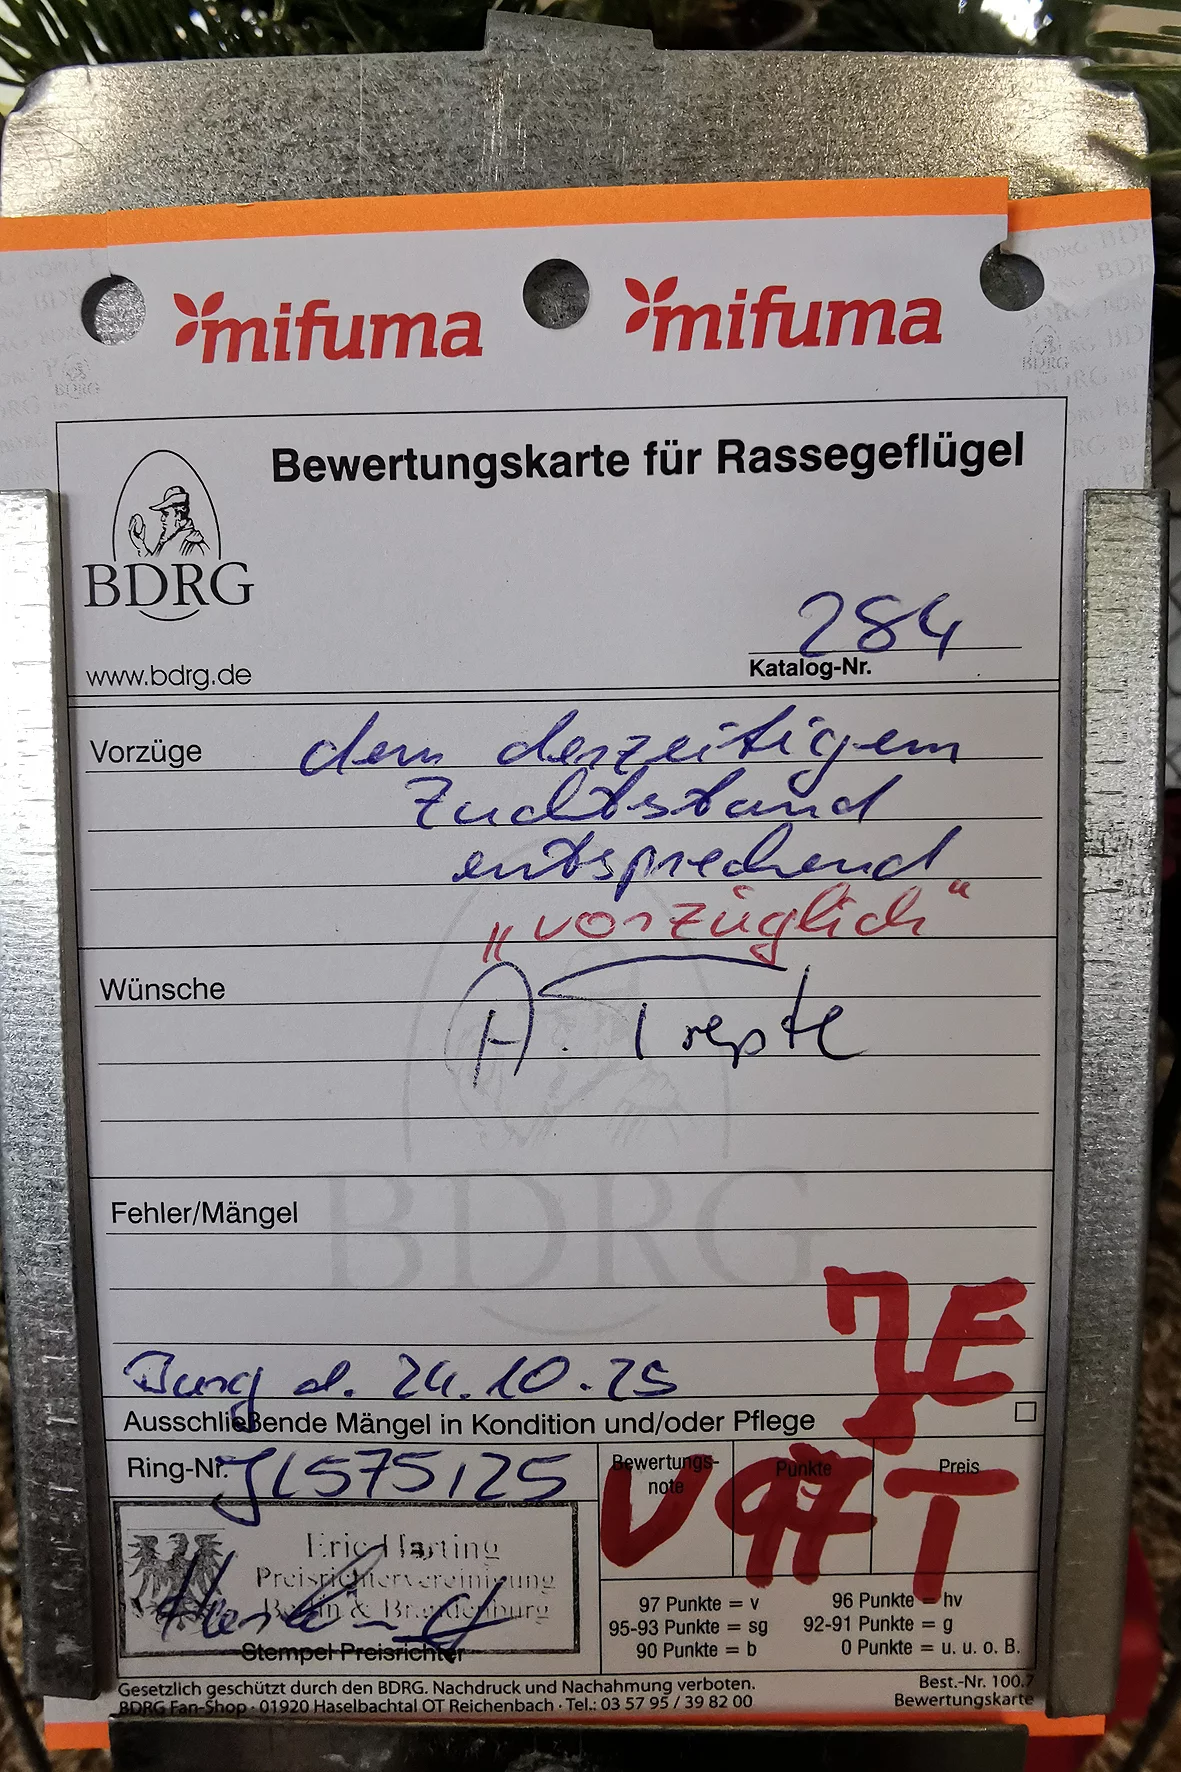 mifuma mifuma
Bewertungskarte für Rassegeflügel
BDRG
www.bdrg.de
284
Katalog-Nr.
Vorzüge dem derzeitigem
Zuchtstand
entsprechend
„vorzüglich“
Wünsche
A. Trepte
BDRG
Fehler/Mängel
JE
Burg d. 24.10.25
Ausschließende Mängel in Kondition und/oder Pflege
Ring-Nr. JL575,25
Bewertungs-
note
Punkte
Preis
V 97 T
Eric Harting
Preisrichtervereinigung
Berlin & Brandenburg
Stempel Preisrichter
97 Punkte = v 96 Punkte = hv
95-93 Punkte = sg 92-91 Punkte = g
90 Punkte = b 0 Punkte = u. u. o. B.
Gesetzlich geschützt durch den BDRG. Nachdruck und Nachahmung verboten. Best.-Nr. 100.7
BDRG Fan-Shop · 01920 Haselbachtal OT Reichenbach · Tel.: 03 57 95 / 39 82 00 Bewertungskarte